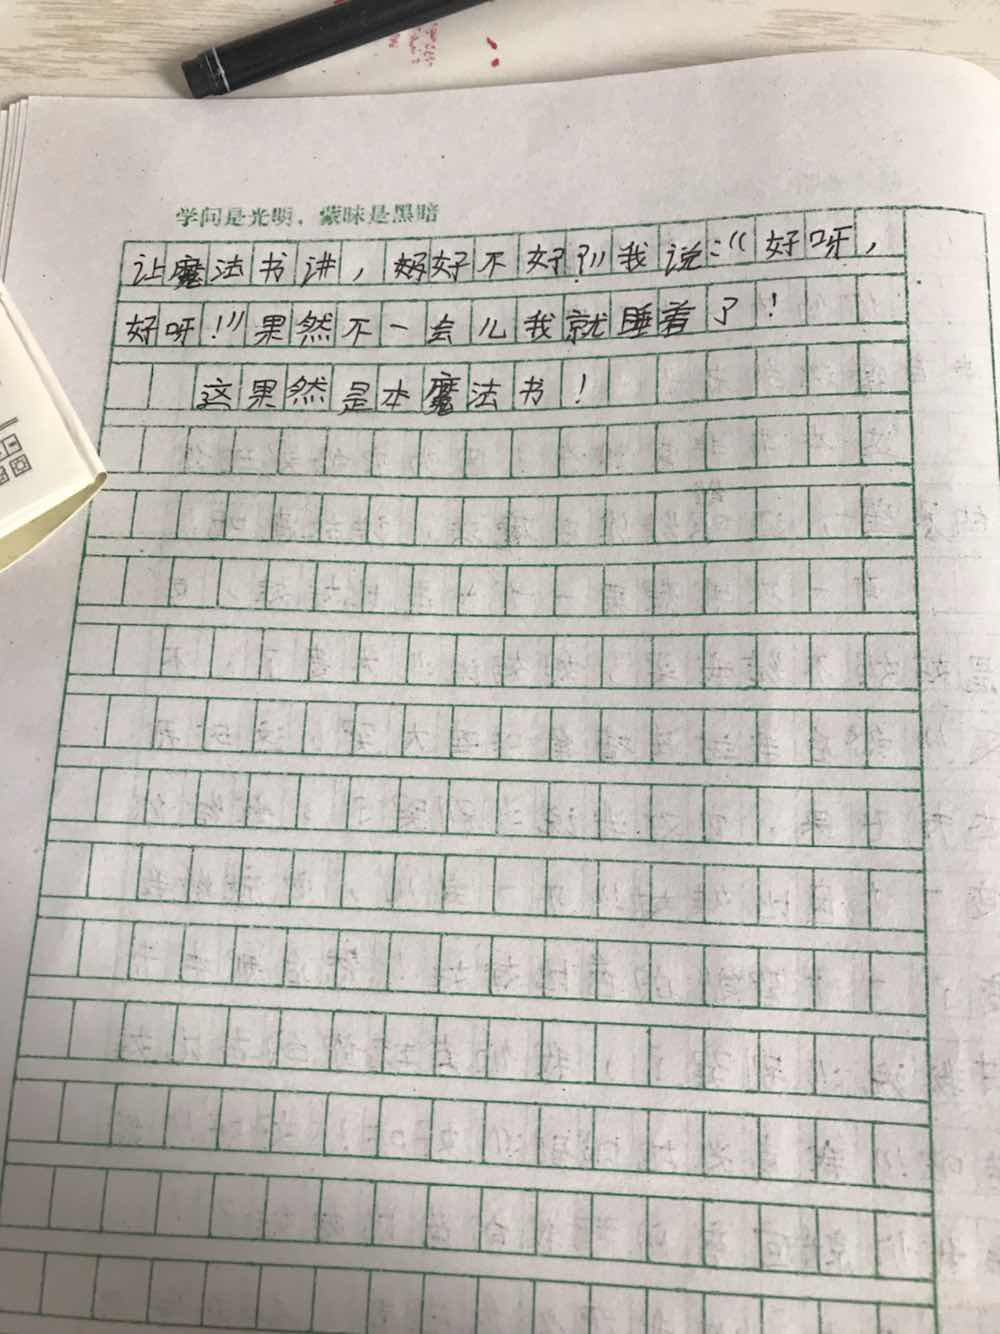 学问是光明，蒙昧是黑暗
让魔法书讲，好不好？”我说：“好呀，
好呀！”果然不一会儿我就睡着了！
这果然是本魔法书！